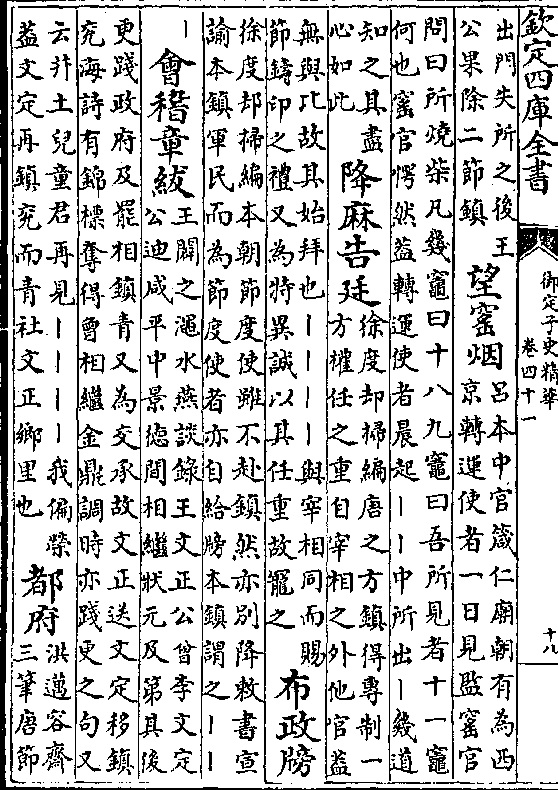 欽定四庫全書
御定子史精華
卷四十一
十八
出門失所之後王
公果除二節鎮
望窰烟
呂本中官箴仁廟朝有為西
京轉運使者一日見監窰官
問曰所燒柴凡幾竈曰十八九竈曰吾所見者十一竈
何也窰官愕然蓋轉運使者晨起丨丨中所出丨幾道
知之其盡
心如此
降麻告廷
徐度却掃編唐之方鎮得專制一
方權任之重自宰相之外他官蓋
無與比故其始拜也丨丨丨丨與宰相同而賜
節鑄印之禮又為特異誠以其任重故寵之
布政牓
徐度却掃編本朝節度使雖不赴鎮然亦別降敕書宣
諭本鎮軍民而為節度使者亦自給牓本鎮謂之丨丨
丨
會稽章紱
王闢之澠水燕談錄王文正公曾李文定
公迪咸平中景德間相繼狀元及第其後
更踐政府及罷相鎮青又為交承故文正送文定移鎮
兖海詩有錦標奪得曾相繼金鼎調時亦踐更之句又
云并土兒童君再見丨丨丨丨我偏榮
蓋文定再鎮兖而青社文正鄉里也
都府
洪邁容齋
三筆唐節